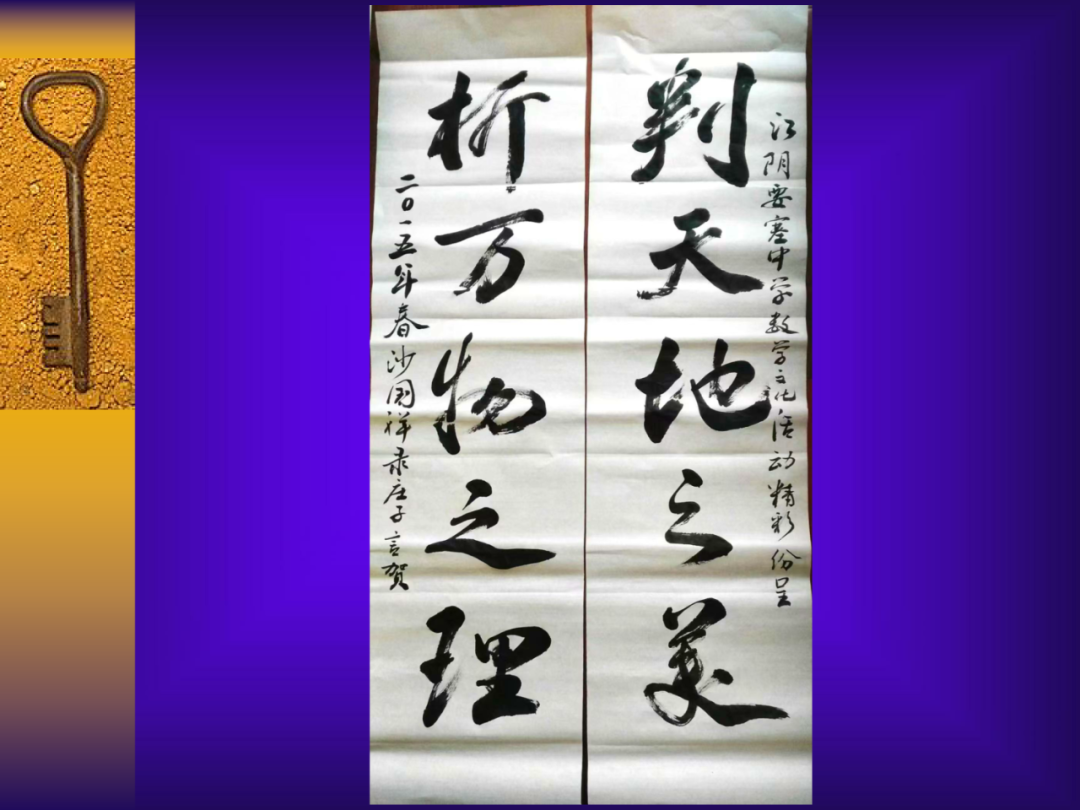 江阴要塞中学数学文化活动精彩份呈
判天地之美
析万物之理
二〇一五年春沙国祥录庄子言贺